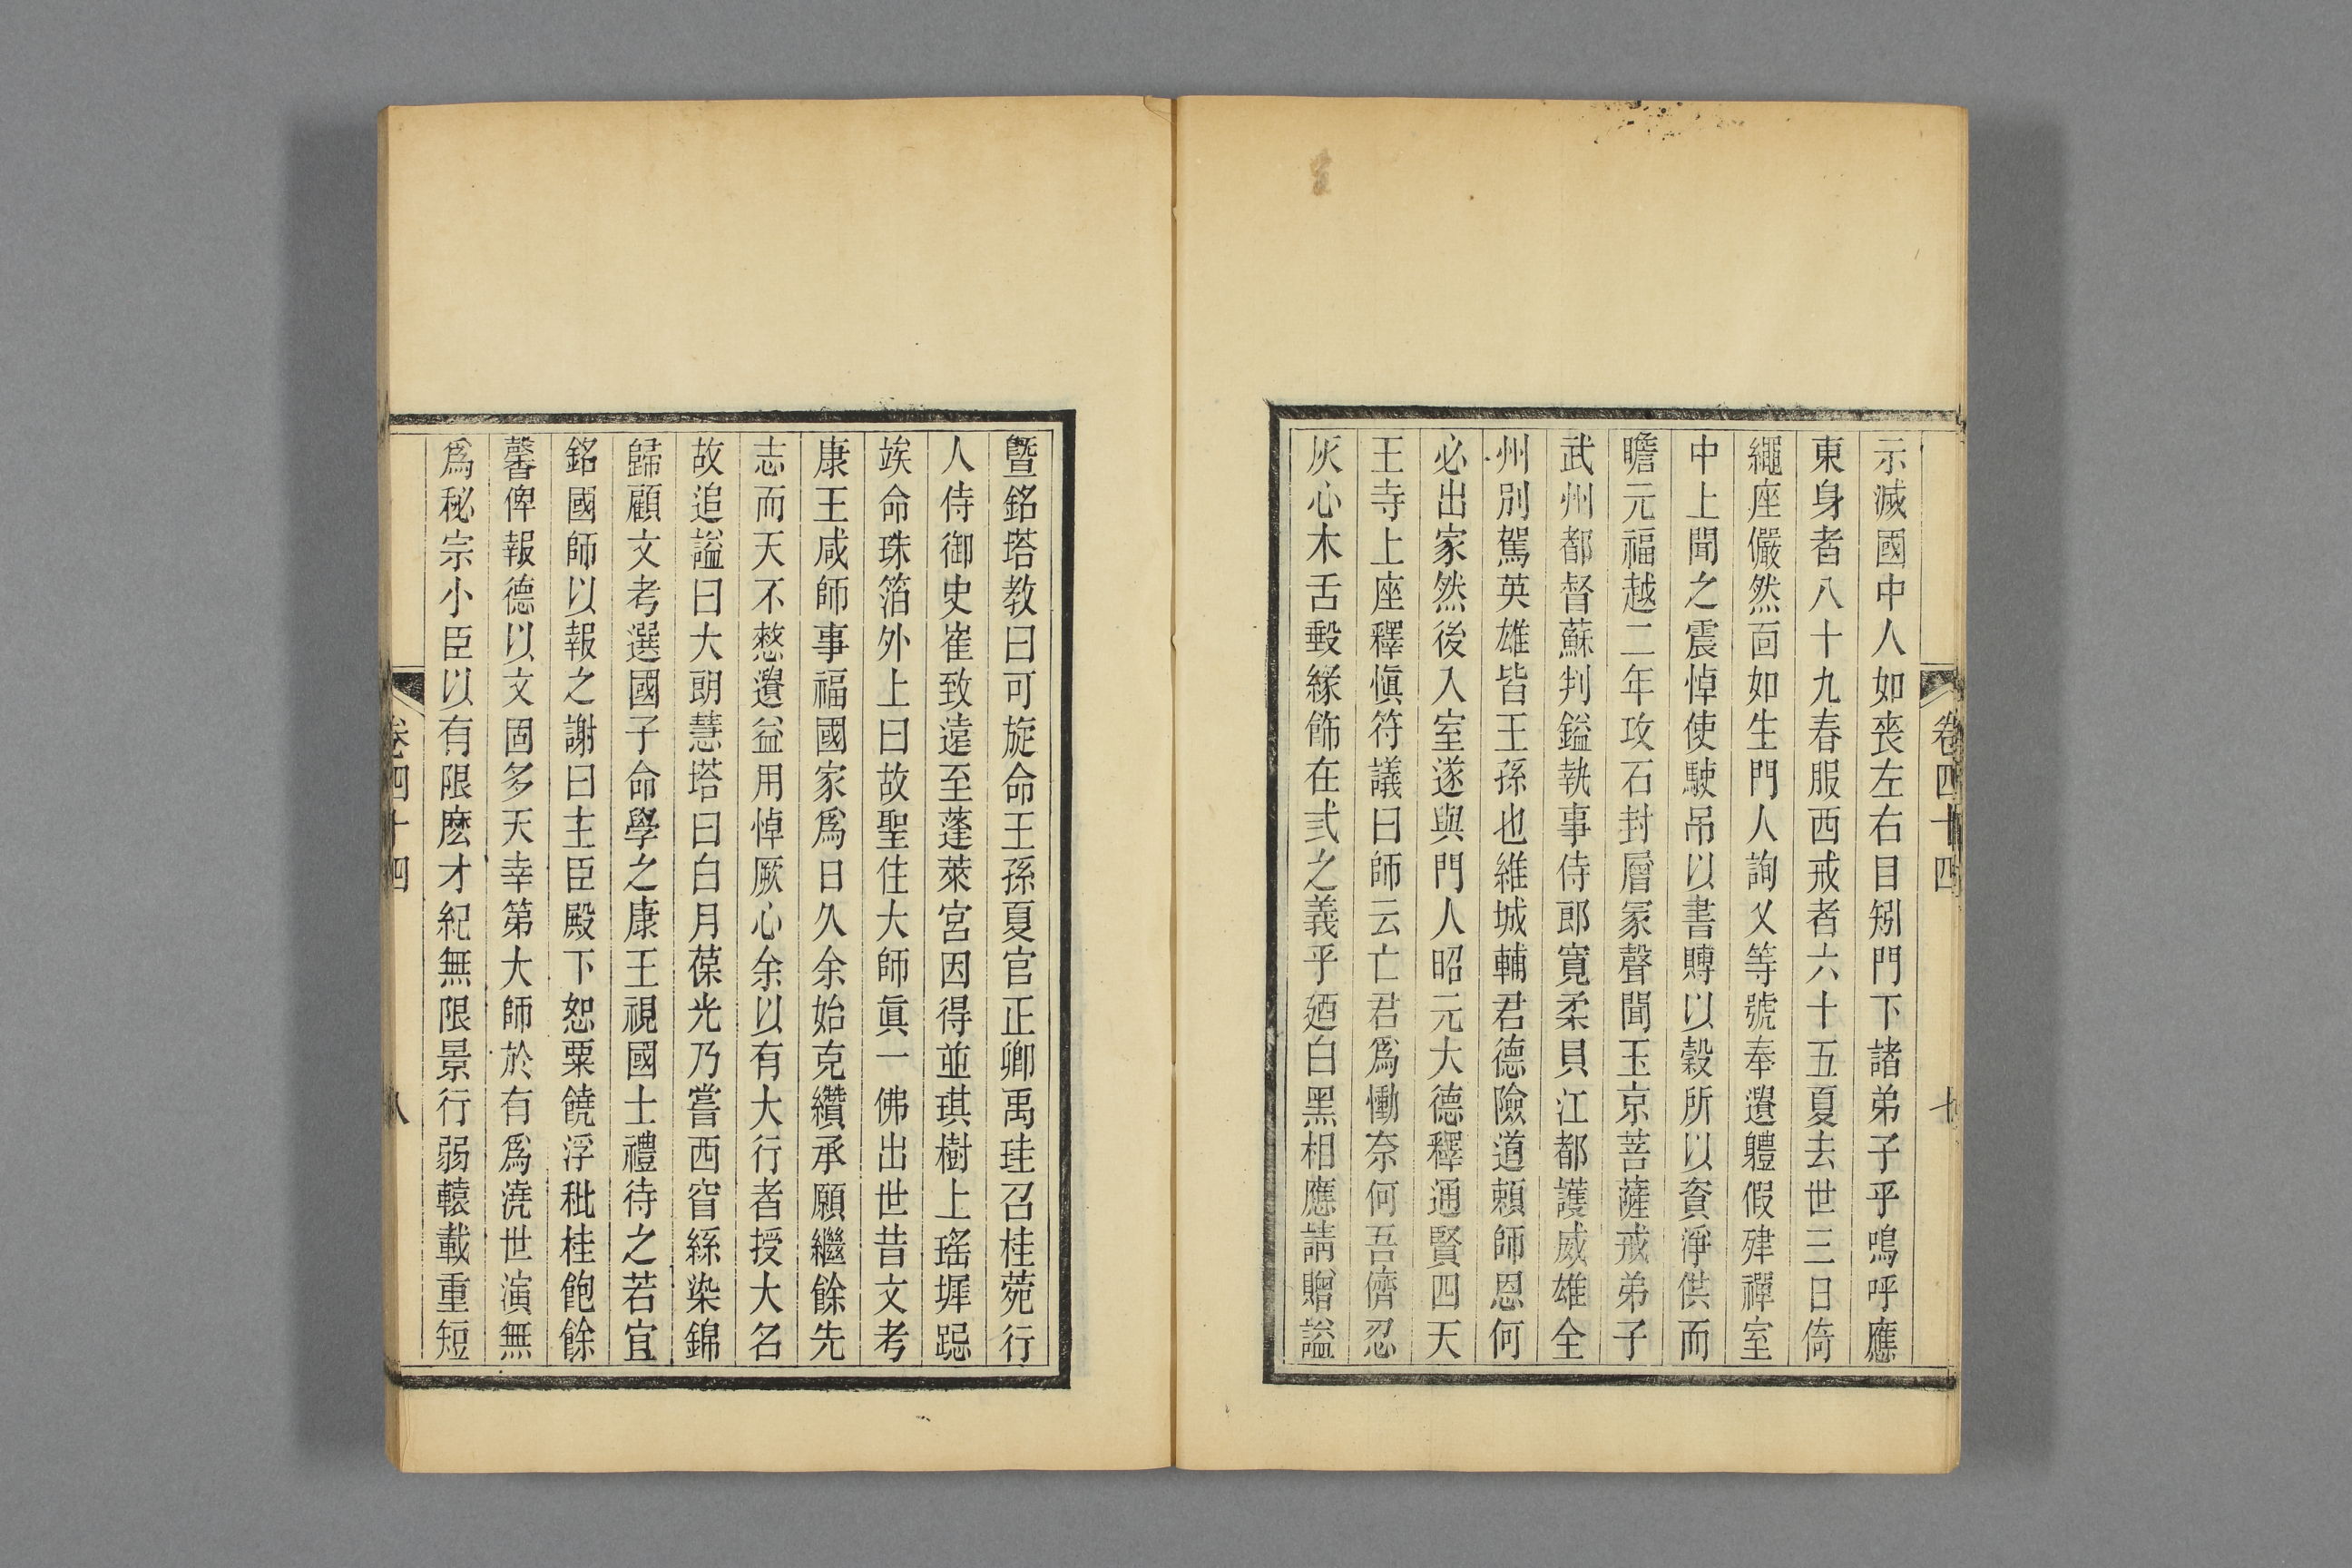 卷四十四
七
示滅國中人如喪左右目矧門下諸弟子乎嗚呼應
東身者八十九春服西戒者六十五夏去世三日倚
繩座儼然面如生門人詢乂等號奉遺軆假殔禪室
中上聞之震悼使駛吊以書賻以穀所以資淨供而
瞻元福越二年攻石封層冢聲聞玉京菩薩戒弟子
武州都督蘇判鎰執事侍郎寬柔貝江都護咸雄全
州別駕英雄皆王孫也維城輔君德險道賴師恩何
必出家然後入室遂與門人昭元大德釋通賢四天
王寺上座釋愼符議曰師云亡君爲慟奈何吾儕忍
灰心木舌毀緣飾在弎之義乎廼白黑相應請贈謚
曁銘塔敎曰可旋命王孫夏官正卿禹珪召桂菀行
人侍御史崔致遠至蓬萊宮因得並琪樹上瑤墀跽
竢命珠箔外上曰故聖住大師眞一佛出世昔文考
康王咸師事福國家爲日久余始克纘承願繼餘先
志而天不憗遺益用悼厥心余以有大行者授大名
故追謚曰大朗慧塔曰白月葆光乃嘗西宦絲染錦
歸顧文考選國子命學之康王視國士禮待之若宜
銘國師以報之謝曰主臣殿下恕粟饒浮秕桂飽餘
馨俾報德以文固多天幸第大師於有爲澆世演無
爲秘宗小臣以有限麽才紀無限景行弱轅載重短
卷四十四
八